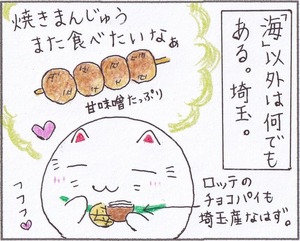 「海」以外は何でも
ある。埼玉。
焼きまんじゅう
また食べたいなぁ
甘味噌たっぷり
ロッテの
チョコパイも
埼玉産なはず。
フフフ